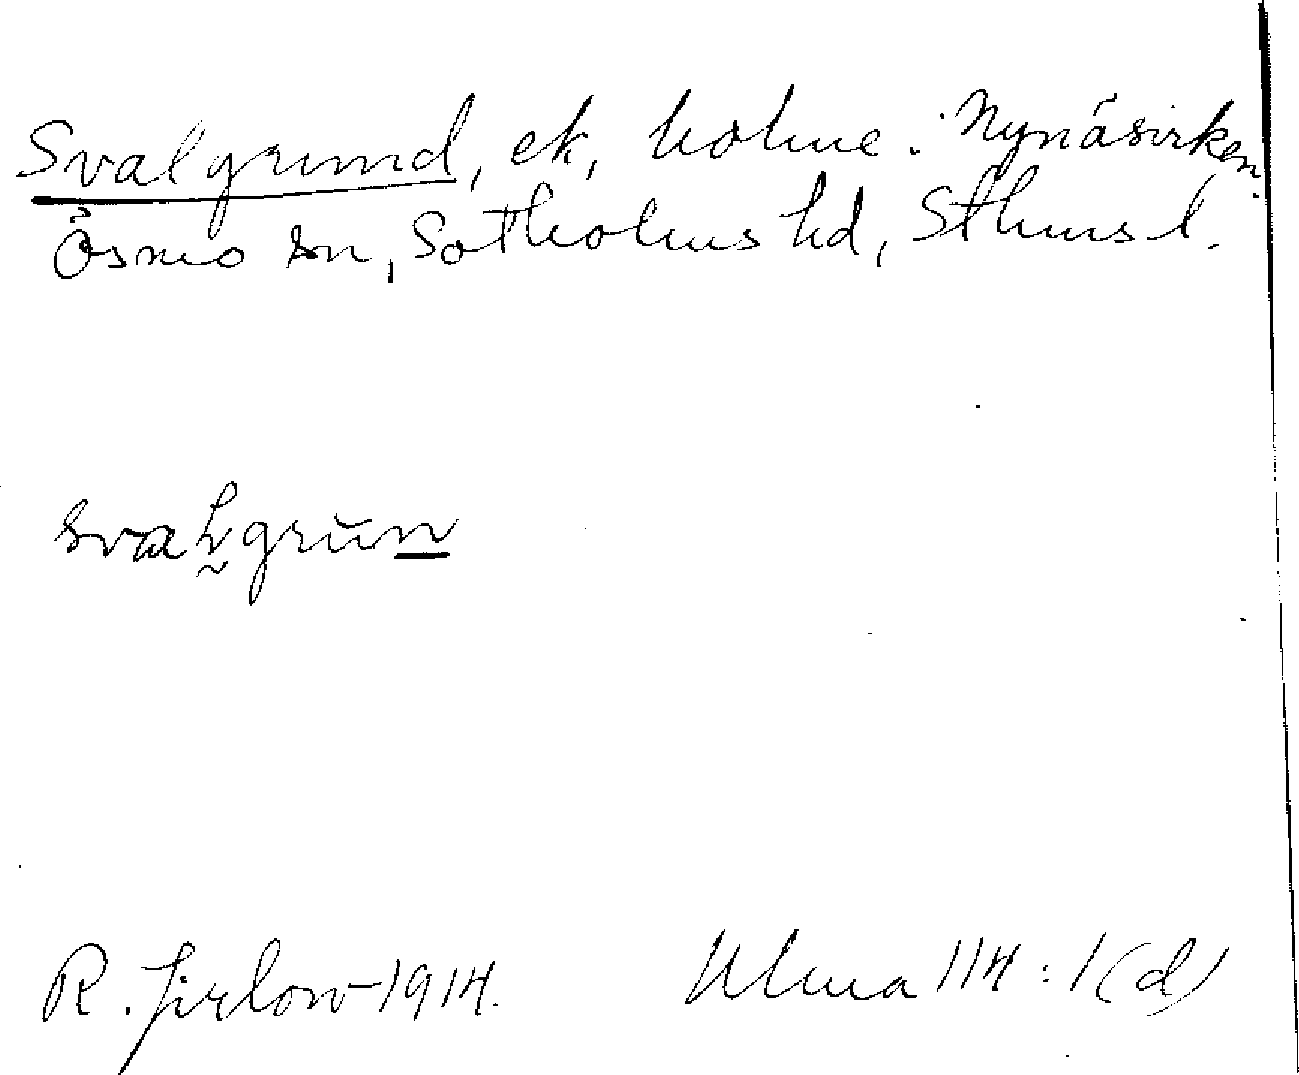 Svalgrund, ek, holme. Nynäsvirken.
Ösmo sn, Sotholms hd, Sthms l.
svalgrun
R. Jirlow 1914. Ulma 114:1(d)